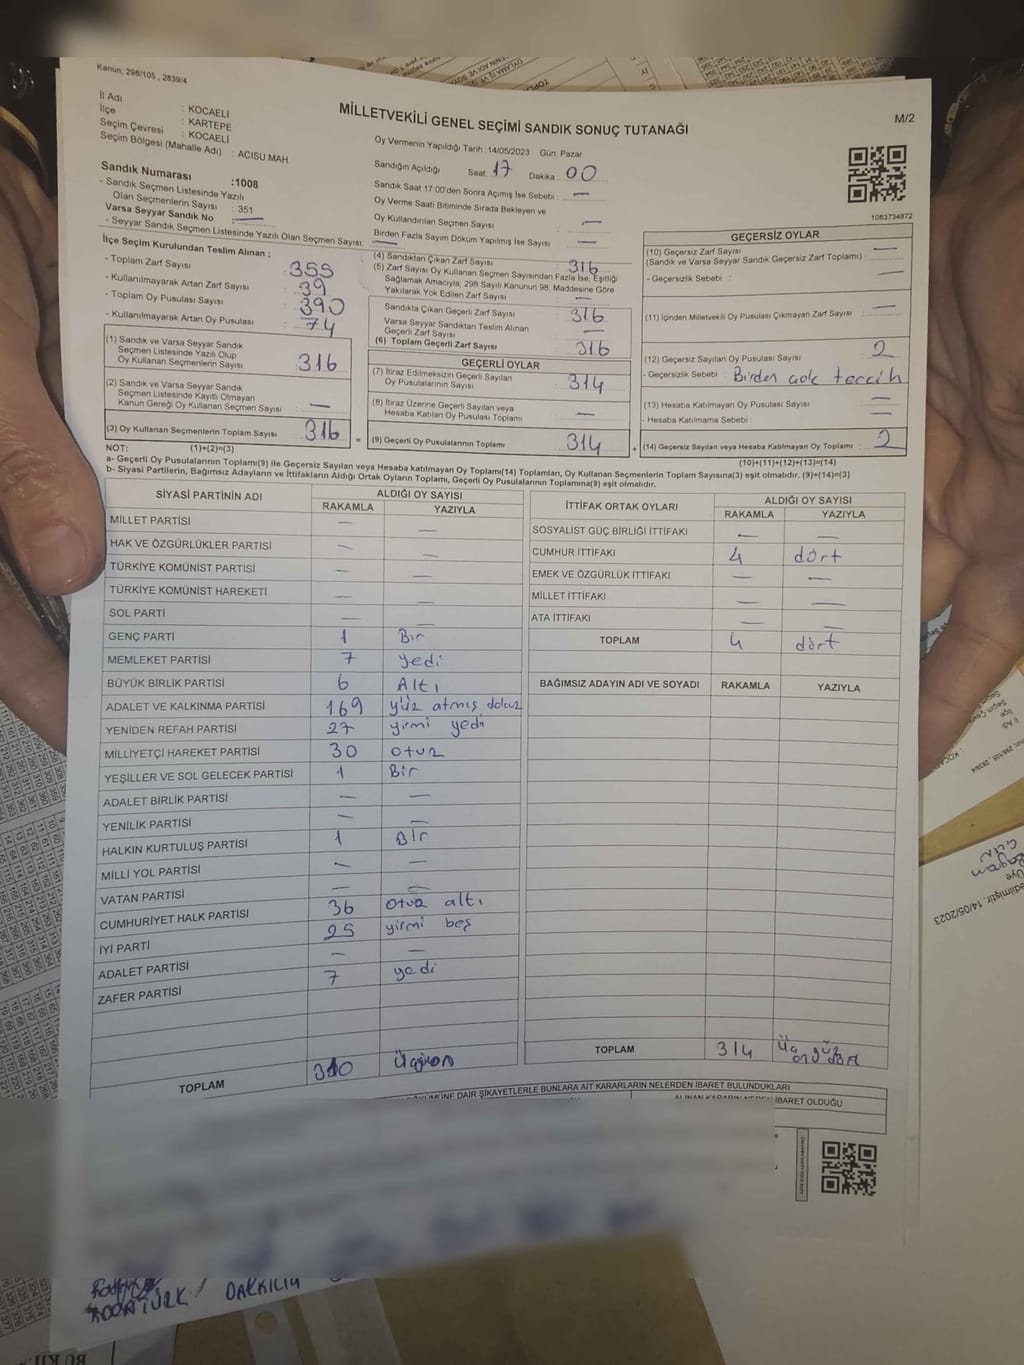 Kanun; 298/105 , 2839/4
İl Adı : KOCAELİ
İlçe : KARTEPE
Seçim Çevresi : KOCAELİ
Seçim Bölgesi (Mahalle Adı) : ACISU MAH
MİLLETVEKİLİ GENEL SEÇİMİ SANDIK SONUÇ TUTANAĞI
M/2
Oy Vermenin Yapıldığı Tarih :14/05/2023 Gün: Pazar
Sandığın Açıldığı Saat: 17 Dakika : 00
Sandık Saat 17:00'den Sonra Açımış İse Sebebi : —
Oy Verme Saati Bitiminde Sırada Bekleyen ve
Oy Kullandırılan Seçmen Sayısı : —
Birden Fazla Sayım Döküm Yapılmış İse Sayısı : —
1083734872
Sandık Numarası :1008
- Sandık Seçmen Listesinde Yazılı
Olan Seçmenlerin Sayısı : 351
Varsa Seyyar Sandık No : —
- Seyyar Sandık Seçmen Listesinde Yazılı Olan Seçmen Sayısı: —
İlçe Seçim Kurulundan Teslim Alınan ;
- Toplam Zarf Sayısı : 355
- Kullanılmayarak Artan Zarf Sayısı : 39
- Toplam Oy Pusulası Sayısı : 390
- Kullanılmayarak Artan Oy Pusulası : 74
(1) Sandık ve Varsa Seyyar Sandık
Seçmen Listesinde Yazılı Olup
Oy Kullanan Seçmenlerin Sayısı : 316
(2) Sandık ve Varsa Seyyar Sandık
Seçmen Listesinde Kayıtlı Olmayan
Kanun Gereği Oy Kullanan Seçmen Sayısı : —
(3) Oy Kullanan Seçmenlerin Toplam Sayısı : 316
(4) Sandıktan Çıkan Zarf Sayısı : 316
(5) Zarf Sayısı Oy Kullanan Seçmen Sayısından Fazla İse, Eşitliği
Sağlamak Amacıyla; 298 Sayılı Kanunun 98. Maddesine Göre
Yakılarak Yok Edilen Zarf Sayısı : —
Sandıkta Çıkan Geçerli Zarf Sayısı : 316
Varsa Seyyar Sandıktan Teslim Alınan
Geçerli Zarf Sayısı : —
(6) Toplam Geçerli Zarf Sayısı : 316
GEÇERLİ OYLAR
(7) İtiraz Edilmeksizin Geçerli Sayılan
Oy Pusulalarının Sayısı : 314
(8) İtiraz Üzerine Geçerli Sayılan veya
Hesaba Katılan Oy Pusulası Toplamı : —
= (9) Geçerli Oy Pusulalarının Toplamı : 314
GEÇERSİZ OYLAR
(10) Geçersiz Zarf Sayısı : —
(Sandık ve Varsa Seyyar Sandık Geçersiz Zarf Toplamı) :
- Geçersizlik Sebebi : —
(11) İçinden Milletvekili Oy Pusulası Çıkmayan Zarf Sayısı : —
(12) Geçersiz Sayılan Oy Pusulası Sayısı : 2
- Geçersizlik Sebebi : Birden çok tercih
(13) Hesaba Katılmayan Oy Pusulası Sayısı : —
- Hesaba Katılmama Sebebi : —
+ (14) Geçersiz Sayılan veya Hesaba Katılmayan Oy Toplamı : 2
NOT: (1)+(2)=(3)
(10)+(11)+(12)+(13)=(14)
a- Geçerli Oy Pusulalarının Toplamı(9) ile Geçersiz Sayılan veya Hesaba katılmayan Oy Toplamı(14) Toplamları, Oy Kullanan Seçmenlerin Toplam Sayısına(3) eşit olmalıdır. (9)+(14)=(3)
b- Siyasi Partilerin, Bağımsız Adayların ve İttifakların Aldığı Ortak Oyların Toplamı, Geçerli Oy Pusulalarının Toplamına(9) eşit olmalıdır.
SİYASİ PARTİNİN ADI ALDIĞI OY SAYISI
RAKAMLA YAZIYLA
MİLLET PARTİSİ — —
HAK VE ÖZGÜRLÜKLER PARTİSİ — —
TÜRKİYE KOMÜNİST PARTİSİ — —
TÜRKİYE KOMÜNİST HAREKETİ — —
SOL PARTİ — —
GENÇ PARTİ 1 Bir
MEMLEKET PARTİSİ 7 yedi
BÜYÜK BİRLİK PARTİSİ 6 Altı
ADALET VE KALKINMA PARTİSİ 169 yüz atmış dokuz
YENİDEN REFAH PARTİSİ 27 yirmi yedi
MİLLİYETÇİ HAREKET PARTİSİ 30 otuz
YEŞİLLER VE SOL GELECEK PARTİSİ 1 Bir
ADALET BİRLİK PARTİSİ — —
YENİLİK PARTİSİ — —
HALKIN KURTULUŞ PARTİSİ 1 Bir
MİLLİ YOL PARTİSİ — —
VATAN PARTİSİ — —
CUMHURİYET HALK PARTİSİ 36 otuz altı
İYİ PARTİ 25 yirmi beş
ADALET PARTİSİ — —
ZAFER PARTİSİ 7 yedi
TOPLAM 310 Üçyüzon
İTTİFAK ORTAK OYLARI ALDIĞI OY SAYISI
RAKAMLA YAZIYLA
SOSYALİST GÜÇ BİRLİĞİ İTTİFAKI — —
CUMHUR İTTİFAKI 4 dört
EMEK VE ÖZGÜRLÜK İTTİFAKI — —
MİLLET İTTİFAKI — —
ATA İTTİFAKI — —
TOPLAM 4 dört
BAĞIMSIZ ADAYIN ADI VE SOYADI RAKAMLA YAZIYLA
TOPLAM 314
DAİR ŞİKAYETLERLE BUNLARA AİT KARARLARIN NELERDEN İBARET BULUNDUKLARI
İBARET OLDUĞU
14/05/2023